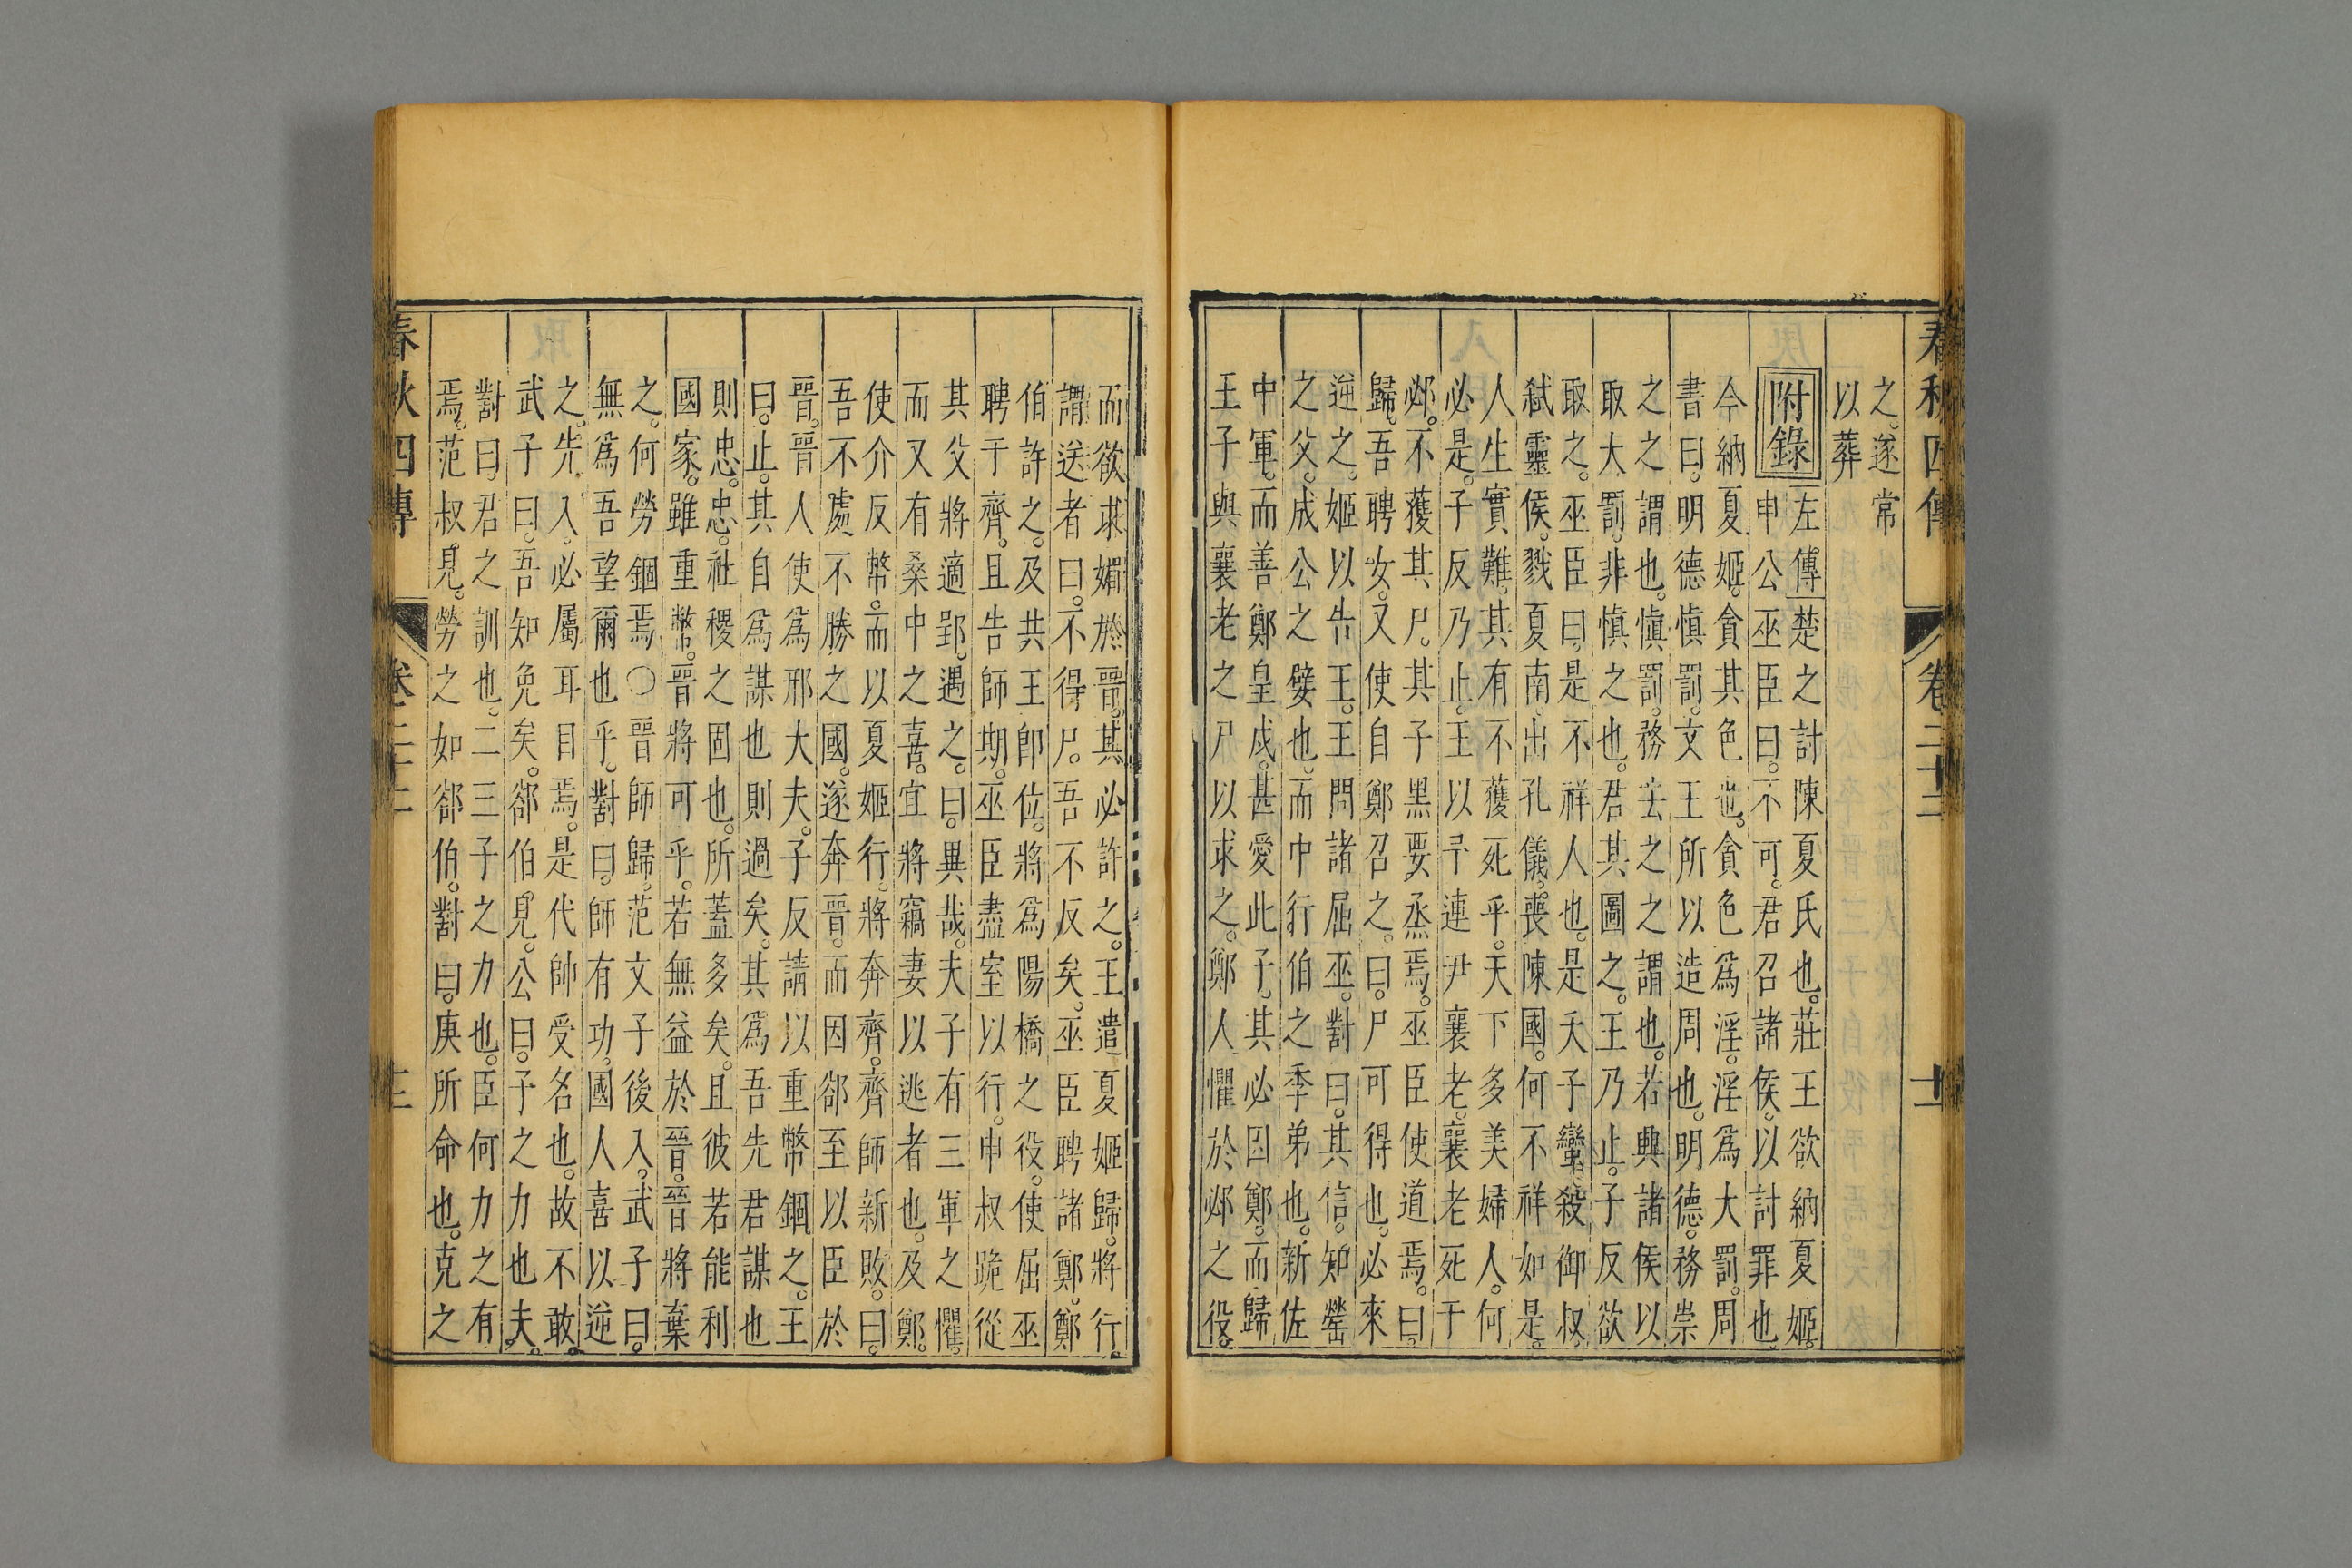 春秋四傳
卷二十二
之遂常
以葬
附錄
左傳楚之討陳夏氏也。莊王欲納夏姬。
申公巫臣曰。不可。君召諸侯。以討罪也。
今納夏姬。貪其色也。貪色爲淫。淫爲大罰。周
書曰。明德慎罰。文王所以造周也。明德。務崇
之之謂也。慎罰。務去之之謂也。若興諸侯以
取大罰。非慎之也。君其圖之。王乃止。子反欲
取之。巫臣曰。是不祥人也。是夭子蠻。殺御叔。
弑靈侯。戮夏南。出孔儀。喪陳國。何不祥如是。
人生實難。其有不獲死乎。天下多美婦人。何
必是。子反乃止。王以予連尹襄老。襄老死于
邲。不獲其尸。其子黑要烝焉。巫臣使道焉。曰。
歸。吾聘女。又使自鄭召之。曰。尸可得也。必來
逆之。姬以告王。王問諸屈巫。對曰。其信。知罃
之父。成公之嬖也。而中行伯之季弟也。新佐
中軍。而善鄭皇戌。甚愛此子。其必因鄭。而歸
王子與襄老之尸以求之。鄭人懼於邲之役。
而欲求媚於晉。其必許之。王遣夏姬歸。將行。
謂送者曰。不得尸。吾不反矣。巫臣聘諸鄭。鄭
伯許之。及共王卽位。將爲陽橋之役。使屈巫
聘于齊。且告師期。巫臣盡室以行。申叔跪從
其父將適郢。遇之。曰。異哉。夫子有三軍之懼。
而又有桑中之喜。宜將竊妻以逃者也。及鄭。
使介反幣。而以夏姬行。將奔齊。齊師新敗。曰。
吾不處不勝之國。遂奔晉。而因郤至以臣於
晉。晉人使爲邢大夫。子反請以重幣錮之。王
曰。止。其自爲謀也則過矣。其爲吾先君謀也
則忠。忠。社稷之固也。所蓋多矣。且彼若能利
國家。雖重幣。晉將可乎。若無益於晉。晉將棄
之。何勞錮焉○晉師歸。范文子後入。武子曰。
無爲吾望爾也乎。對曰。師有功。國人喜以逆
之。先入。必屬耳目焉。是代帥受名也。故不敢。
武子曰。吾知免矣。郤伯見。公曰。子之力也夫。
對曰。君之訓也。二三子之力也。臣何力之有
焉。范叔見。勞之如郤伯。對曰。庚所命也。克之
春秋四傳
卷二十二